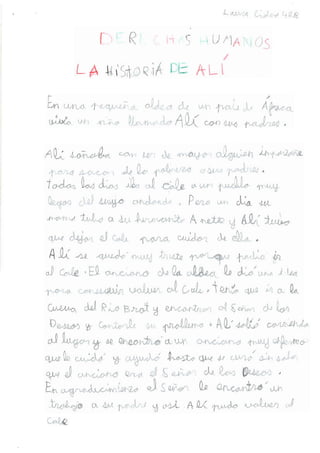 Laura Cuber 4ºB
DERECHOS HUMANOS
LA HISTORIA DE ALÍ
En una pequeña aldea de un país de África
vivía un niño llamado Alí con sus padres.
Alí soñaba con ser de mayor alguien importante
para sacar de la pobreza a sus padres.
Todos los días iba al cole a un pueblo muy
lejos del suyo andando. Pero un día su
mama tubo a su hermanita Anette y Alí tuvo
que dejar el Cole para cuidar de ella.
Alí se quedó muy triste porque no podía ir
al Cole. El anciano de la aldea le dió una idea
para conseguir volver al Cole. Tenía que ir a la
Cueva del Río Brot y encontrar al Señor de los
Deseos y contarle su problema. Alí salió corriendo
al lugar y se encontró a un anciano muy enfermo
que le cuidó y ayudó hasta que se curó sin saber
que el anciano era el Señor de los Deseos.
En agradecimiento el Señor le encontró un
trabajo a su padre y así Alí pudo volver al
Cole